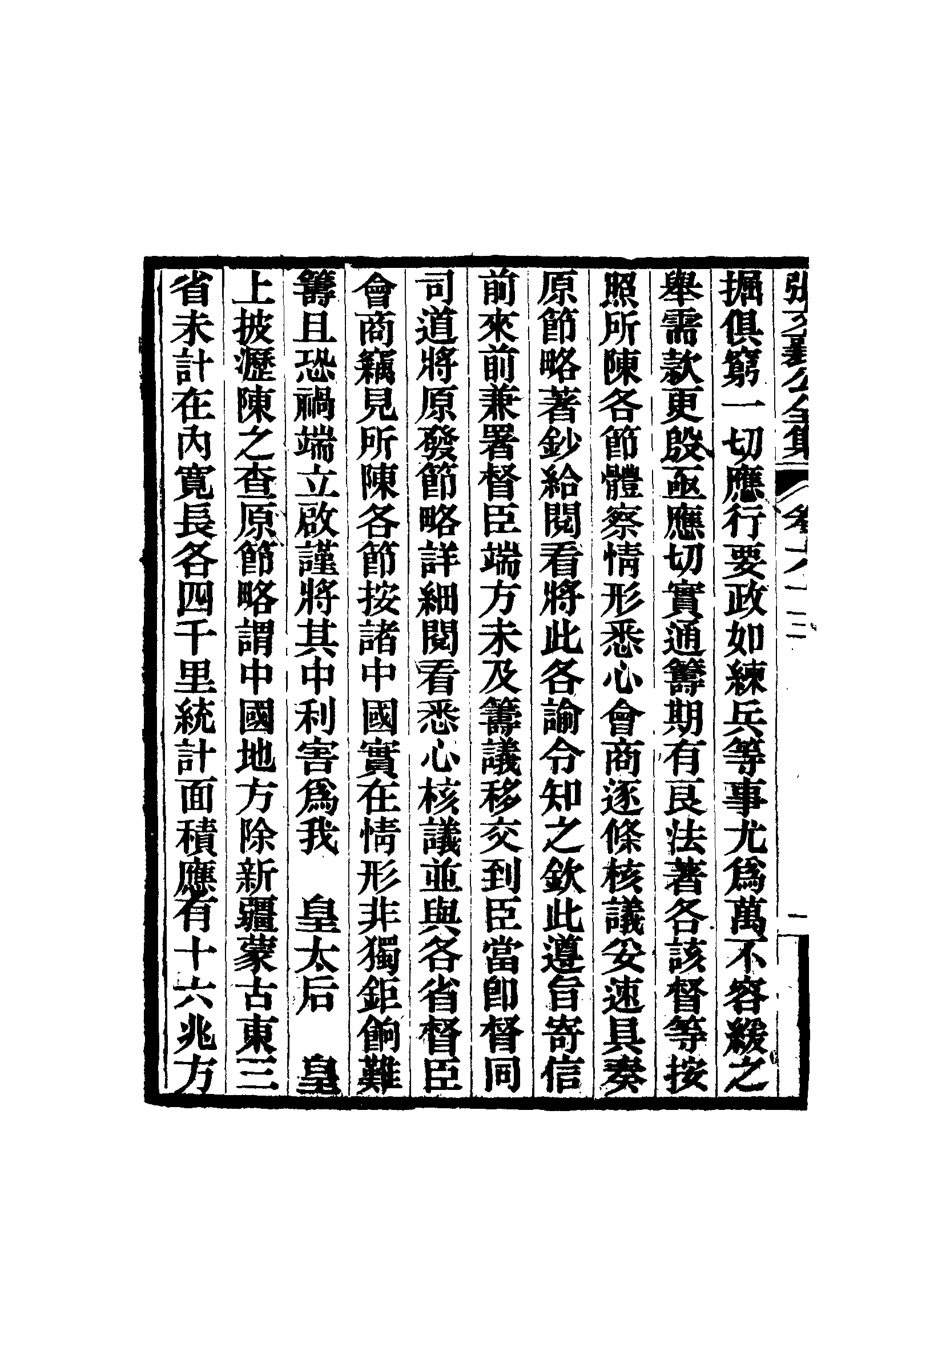 張文襄公全集 卷六十三 一
掘俱窮一切應行要政如練兵等事尤爲萬不容緩之
舉需款更殷亟應切實通籌期有良法著各該督等按
照所陳各節體察情形悉心會商逐條核議妥速具奏
原節略著鈔給閱看將此各諭令知之欽此遵旨寄信
前來前兼署督臣端方未及籌議移交到臣當卽督同
司道將原發節略詳細閱看悉心核議並與各省督臣
會商竊見所陳各節按諸中國實在情形非獨鉅餉難
籌且恐禍端立啟謹將其中利害爲我 皇太后 皇
上披瀝陳之查原節略謂中國地方除新疆蒙古東三
省未計在內寬長各四千里統計面積應有十六兆方